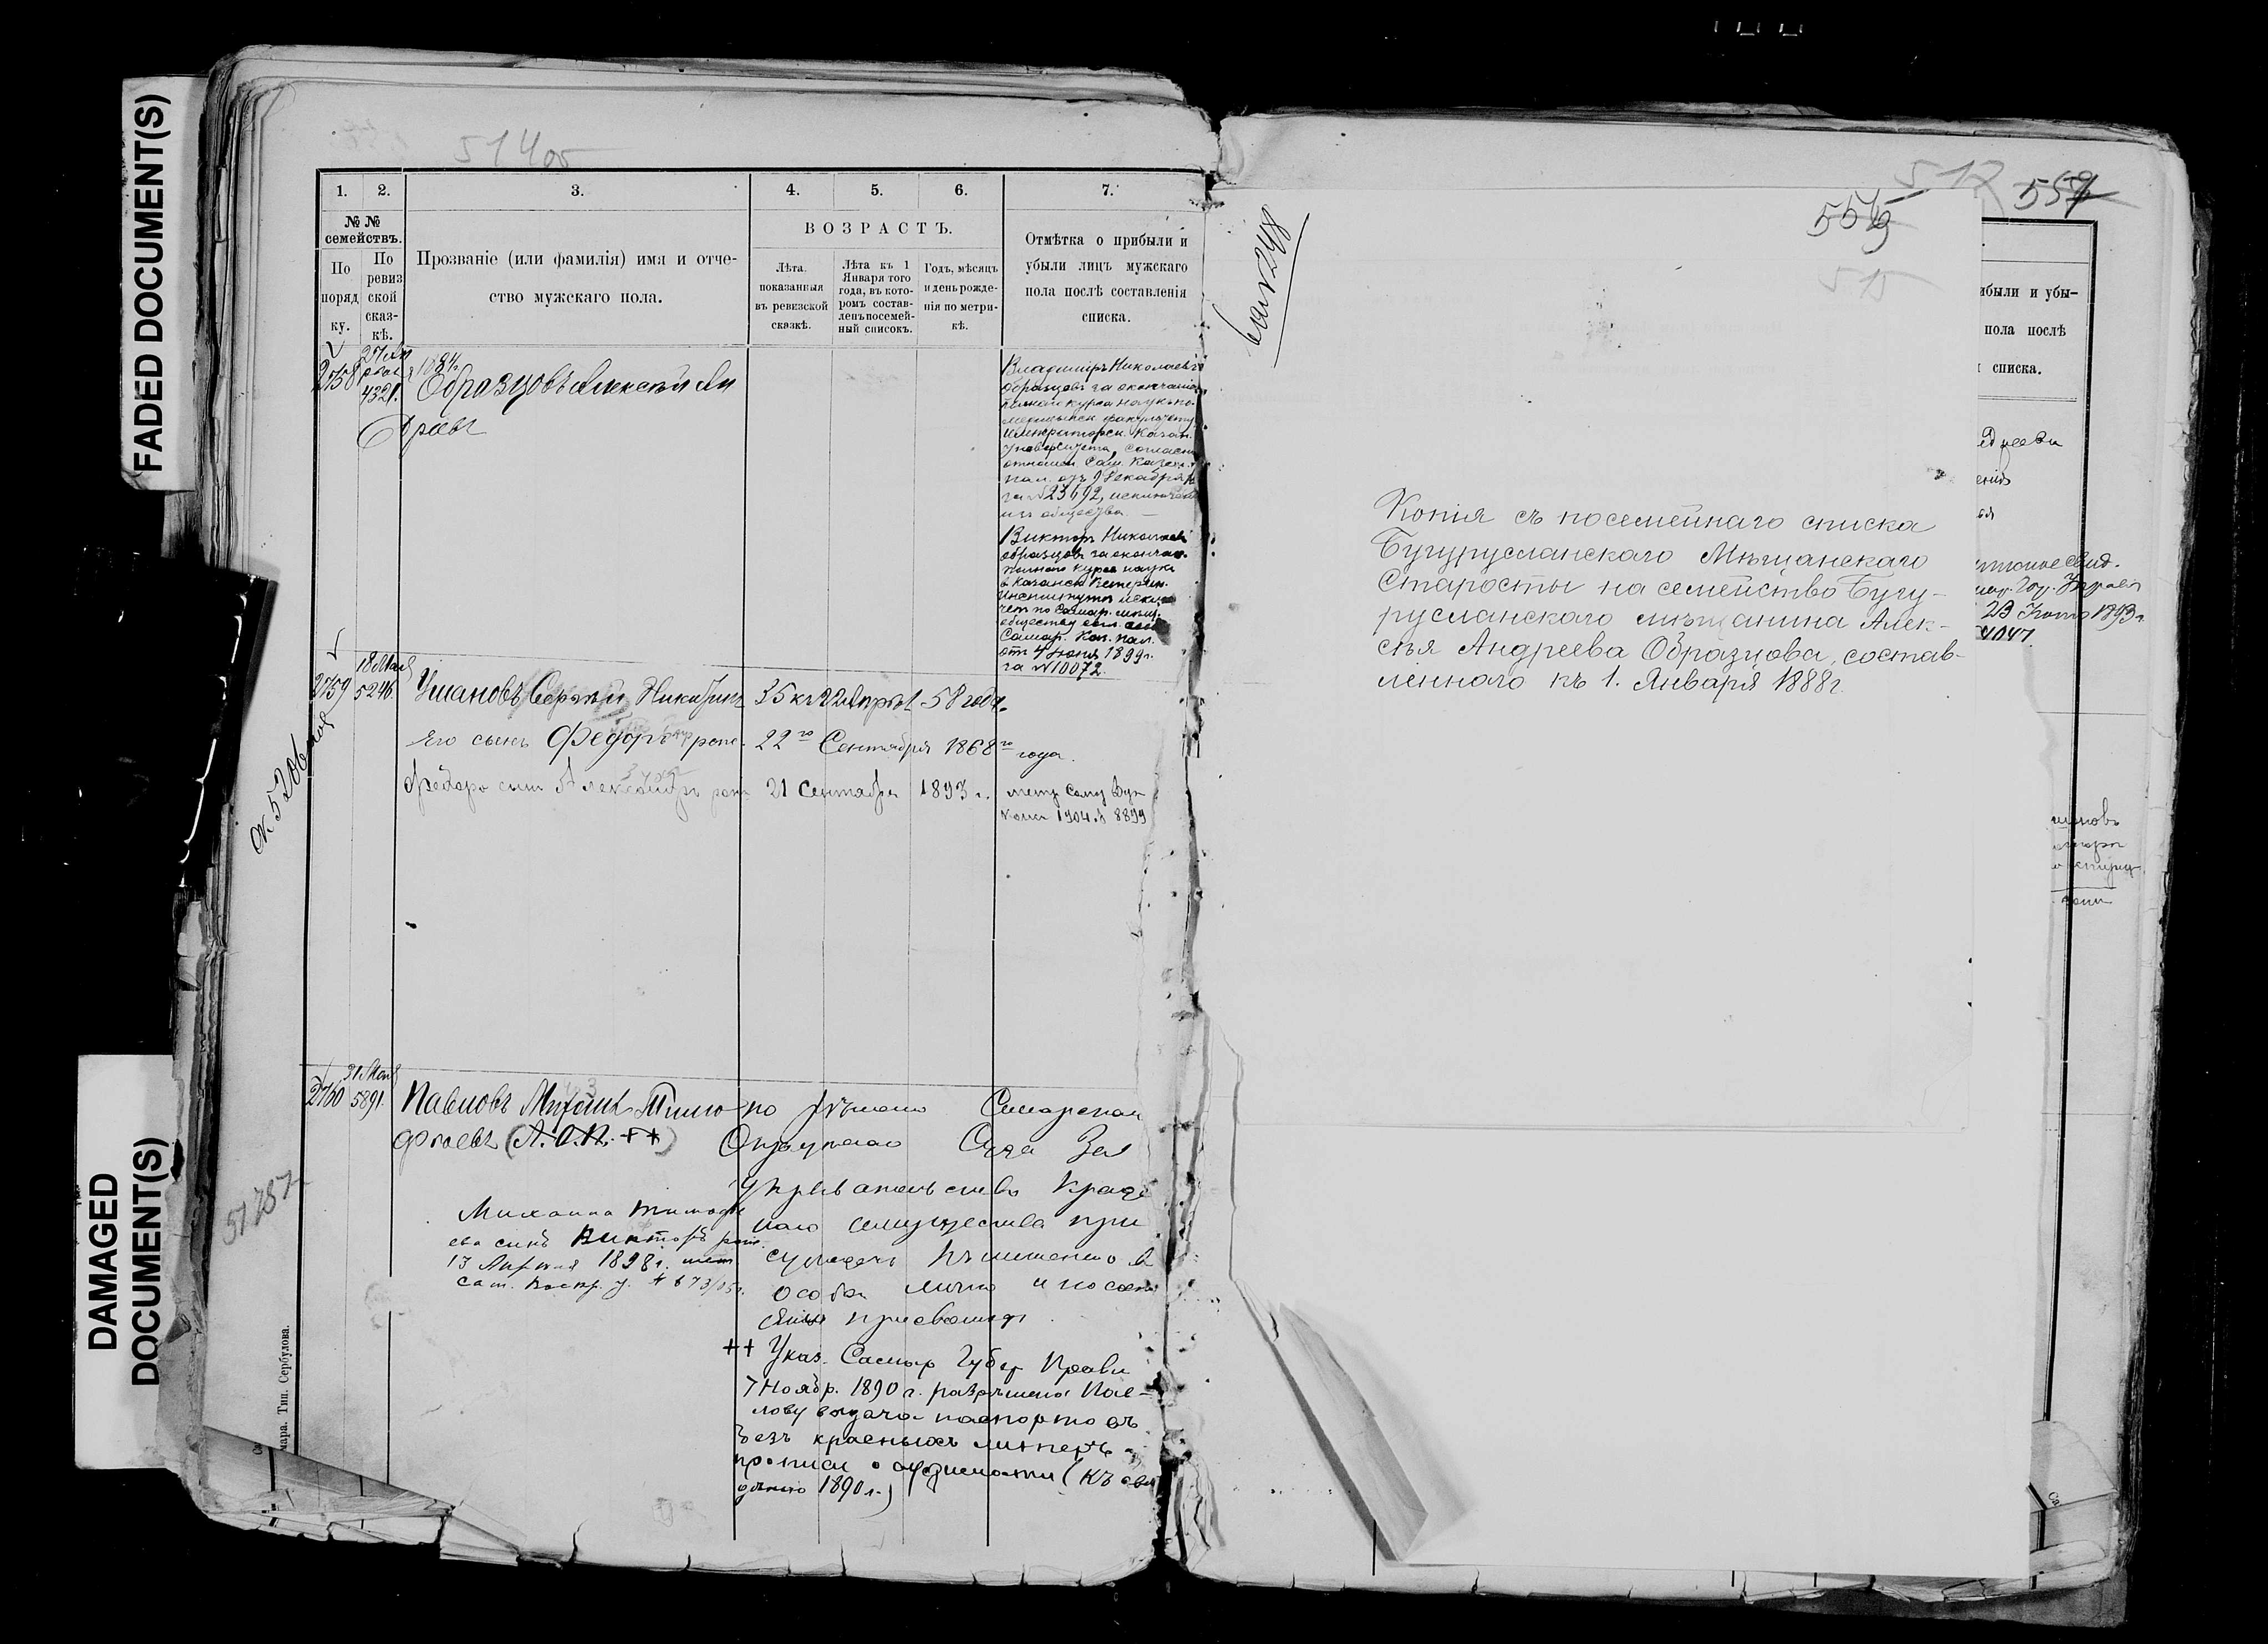 FADED DOCUMENT(S)
DAMAGED
DOCUMENT(S)
514об
1. 2. 3. 4. 5. 6. 7.
№ №
семействъ.
По
поряд
ку.
По
ревиз
ской
сказ-
кѣ.
Прозваніе (или фамилія) имя и отче-
ство мужскаго пола.
ВОЗРАСТЪ.
Лѣта.
показанныя
въ ревизской
сказкѣ.
Лѣта къ 1
Января того
года, въ кото-
ромъ состав-
ленъ посемей-
ный списокъ.
Годъ, мѣсяцъ
и день рожде-
нія по метри-
кѣ.
Отмѣтка о прибыли и
убыли лицъ мужскаго
пола послѣ составленія
списка.
2758
4321.
Образцовъ Алексѣй Ан
дреевъ
Владиміръ Николаевъ
Образцовъ за окончаніе
полнаго курса наукъ по
медицинск. факультету
Императорск. Казан.
Университета, согласно
отношен. Сам. Казен.
пал. отъ 9 Декабря
за № 23692, исключенъ
изъ общества. —
Викторъ Николаевъ
Образцовъ за окончан.
полнаго курса наукъ
въ Казанск. Ветерин.
Институтѣ исклю-
ченъ по Самар. мѣщ.
обществу
Самар. Каз. пал.
отъ 4 Іюня 1899 г.
за № 10072.
2759
18 Мая
5246
Ушановъ Сергѣй Никитинъ 35 къ 22 Апрѣл. 58 года.
Его сынъ Федоръ рож. 22го Сентября 1868го года.
Федора сынъ Александръ рож. 21 Сентября 1893 г.
метр. Само. Дух.
Конс. 1904. № 8899
2760
31 Мая
5891.
Павловъ Михаилъ Тимо
феевъ (А. О. П. ++)
по рѣшенію Самарскаго
Окружнаго Суда За
укрывательство краде
наго имущества при
сужденъ къ лишенію
особен. лично и по состо
янію присвоен.
Михаила Тимофе
ева сынъ Викторъ рож.
13 Апрѣля 1898 г. метр.
Сам. Воскр. ц. № 673/05 г.
++ Указ. Самар. Губер. Правл.
7 Ноябр. 1890 г. разрѣшена Пав-
лову выдача паспортовъ
безъ красныхъ литеръ
прописи о судимости (къ свѣ
дѣнію 1890 г.)
51787
Самара. Тип. Сербулова.
512
557
515
Копія съ посемейнаго списка
Бугурусланскаго Мѣщанскаго
Старосты на семейство Бугу-
русланскаго мѣщанина Алек-
сѣя Андреева Образцова, состав-
леннаго къ 1. Января 1888 г.
ибыли и убы-
пола послѣ
списка.
23 Іюня 1893 г.
4047.